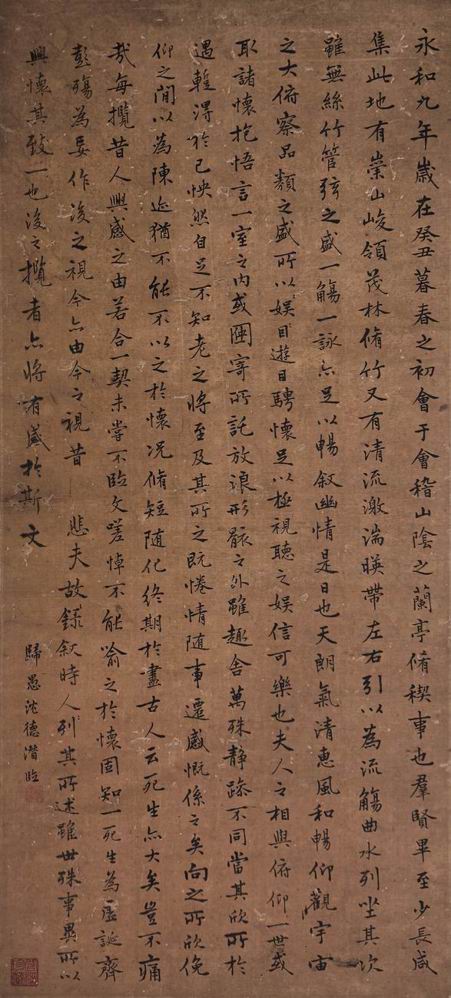 永和九年歲在癸丑暮春之初會于會稽山陰之蘭亭脩稧事也羣賢畢至少長咸
集此地有崇山峻領茂林脩竹又有清流激湍暎帶左右引以為流觴曲水列坐其次
雖無絲竹管弦之盛一觴一詠亦足以暢叙幽情是日也天朗氣清惠風和暢仰觀宇宙
之大俯察品類之盛所以娛目遊目騁懷足以極視聽之娛信可樂也夫人之相與俯仰一世或
取諸懷抱悟言一室之內或因寄所託放浪形骸之外雖趣舍萬殊静躁不同當其欣所於
遇蹔得於己怏然自足不知老之將至及其所之既惓情隨事遷感慨係之矣向之所欣俛
仰之間以為陳迹猶不能不以之於懷況脩短隨化終期於盡古人云死生亦大矣豈不痛
哉每攬昔人興感之由若合一契未嘗不臨文嗟悼不能喻之於懷固知一死生為虛誕齊
彭殤為妄作後之視今亦由今之視昔 悲夫故錄叙時人列其所述雖世殊事異所以
興懷其致一也後之攬者亦將有感於斯文
歸愚沈德潛臨